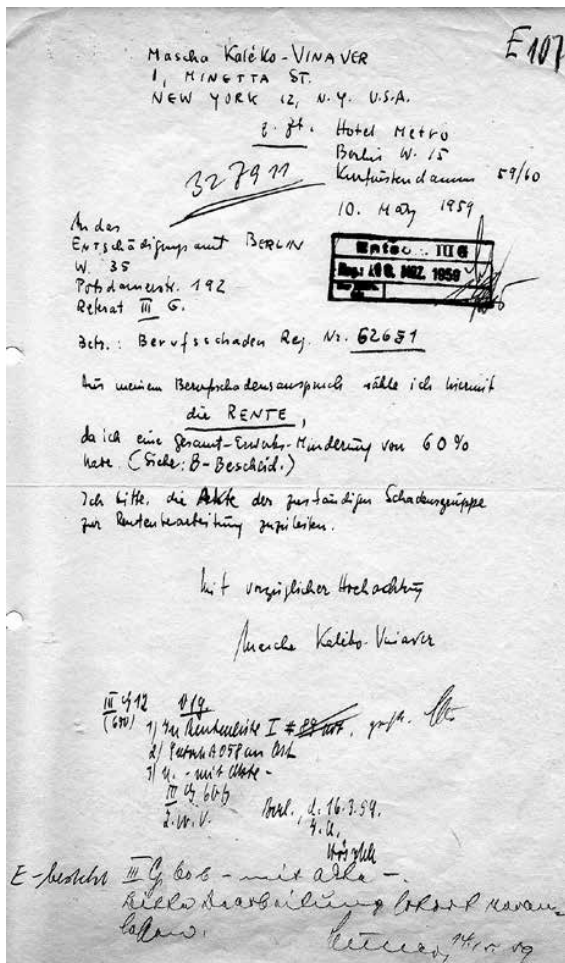 E 107
Mascha Kaléko-VINAVER
1, MINETTA ST.
NEW YORK 12, N.Y. U.S.A.
z. Zt. Hotel Metro
Berlin W. 15
Kurfürstendamm 59/60
327911
10. März 1959
An das
Entschädigungsamt BERLIN
W. 35
Potsdamerstr. 192
Referat III G.
III G
MRZ. 1959
Betr.: Berufsschaden Reg. Nr.
Aus meinem Berufschadensanspruch wähle ich hiermit
die RENTE,
da ich eine Gesamt-Erwerbs-Minderung von 60%
habe. (Siehe: B-Bescheid.)
Ich bitte, die Akte der zuständigen Schadensgruppe
zur Rentenbearbeitung zuzuleiten.
Mit vorzüglicher Hochachtung
Mascha Kaléko-Vinaver
III G 12 Vfg
1) In Rentenliste I
2)
3) U. - mit Akte -
III G
z.w.V. Berl., d. 16.3.59.
III G - mit Akte -.
Bearbeitung